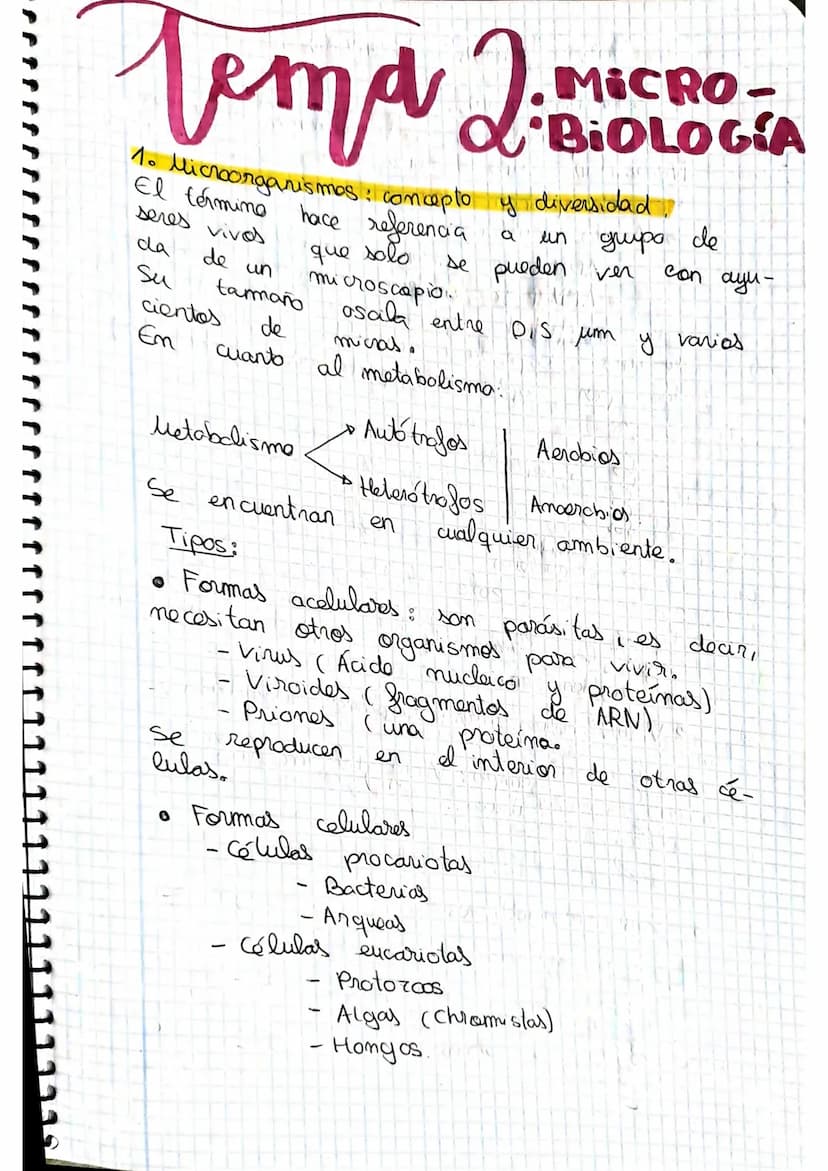 Tema 2: MiCRO-
BiOLOGÍA
1. Microorganismos: concepto y diversidad.
El término hace referencia a un grupo de
seres vivos que solo se pueden ver con ayu-
da de un microscopio.
Su tamaño oscila entre 0,5 µm y varios
cientos de micras.
En cuanto al metabolismo:
Metabolismo
Autótrofos
Aerobios
Heterótrofos
Anaerobios
Se encuentran en cualquier ambiente.
Tipos:
• Formas acelulares: son parásitas, es decir,
necesitan otros organismos para vivir.
- Virus (Ácido nucleico y proteínas)
- Viroides (fragmentos de ARN)
- Priones (una proteína.
Se reproducen en el interior de otras cé-
lulas.
• Formas celulares
- Células procariotas
- Bacterias
- Arqueas
- Células eucariotas
- Protozoos
- Algas (Chromistas)
- Hongos.